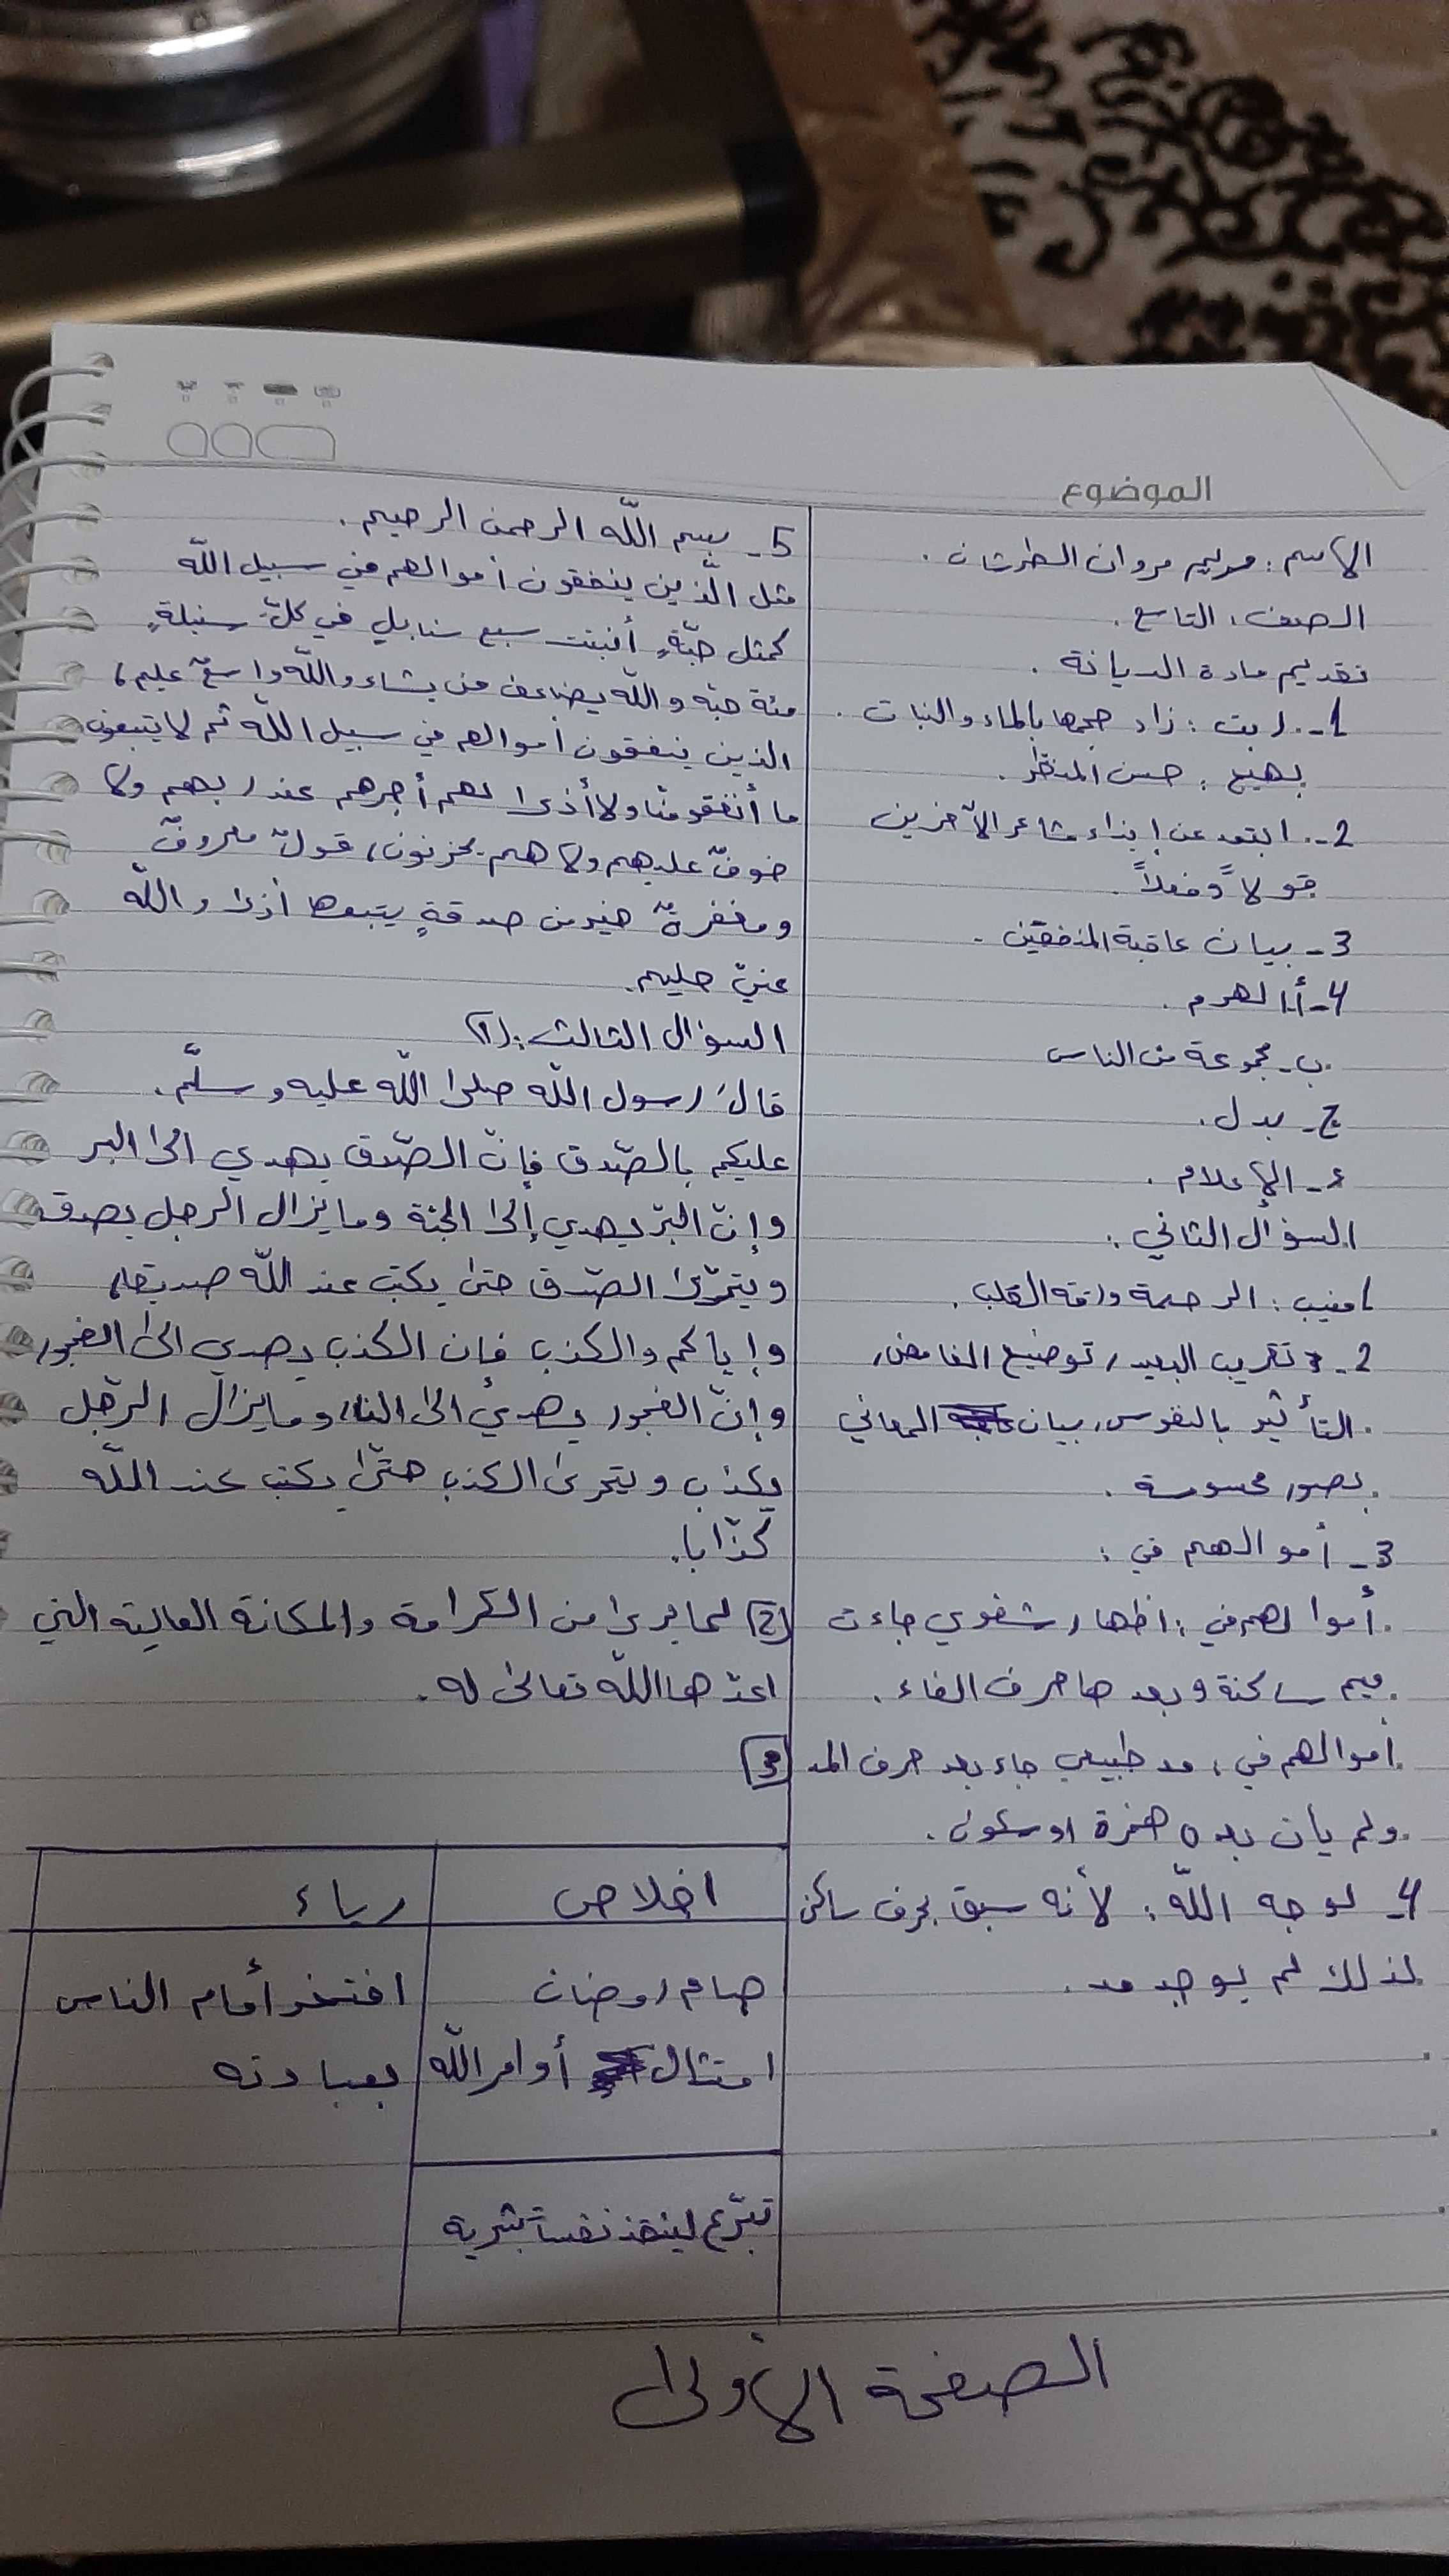 الموضوع
الاسم: مريم مروان الطرشان.
الصف: التاسع.
تقديم مادة الديانة.
1- ربت: زاد حجمها بالماء والنبات.
بهيج: حسن المنظر.
2- ابتعد عن إيذاء مشاعر الآخرين
قولاً وفعلاً.
3- بيان عاقبة المنفقين.
4- أ- الهرم.
ب- مجموعة من الناس
ج- بدل.
ء- الإعلام.
السؤال الثاني:
1 منيب: الرحمة ورقة القلب.
2- تقريب البعيد، توضيح الغامض،
التأثير بالنفوس، بيان المعاني
بصور محسوسة.
3- أموالهم في:
أموالهم في: اظهار شفوي جاءت
ميم ساكنة وبعدها حرف الفاء.
أموالهم في: مد طبيعي جاء بعد حرف المد
ولم يأت بعده همزة او سكون.
4- لوجه الله: لأنه سبق بحرف ساكن
لذلك لم يوجد مد.
5- بسم الله الرحمن الرحيم.
مثل الّذين ينفقون أموالهم في سبيل اللّه
كمثل حبّةٍ أنبتت سبع سنابل في كلّ سنبلةٍ
مئة حبة واللّه يضاعف من يشاء واللّه واسعٌ عليم،
الذين ينفقون أموالهم في سبيل اللّه ثم لا يتبعون
ما أنفقو منّا ولا أذى لهم أجرهم عند ربهم ولا
خوفٌ عليهم ولا هم يحزنون، قولٌ معروفٌ
ومغفرةٌ خير من صدقةٍ يتبعها أذى واللّه
غنيٌ حليم.
السؤال الثالث: (1)
قال رسول اللّه صلى اللّه عليه وسلّم.
عليكم بالصّدق فإنّ الصّدق يهدي الى البر
وإنّ البرّ يهدي إلى الجنة وما يزال الرجل يصدق
ويتحرّى الصّدق حتى يكتب عند اللّه صديقا،
وإياكم والكذب فإن الكذب يهدي الى الفجور
وإنّ الفجور يهدي الى النار وما يزال الرّجل
يكذب ويتحرى الكذب حتّى يكتب عند اللّه
كذّابا.
(2) لما يرى من الكرامة والمكانة العالية التي
اعدّها اللّه تعالى له.
(3)
اخلاص رياء
صام رمضان افتخر أمام الناس
امتثال أوامر اللّه بعبادته
تبرّع لينقذ نفساً بشرية
الصفحة الأولى